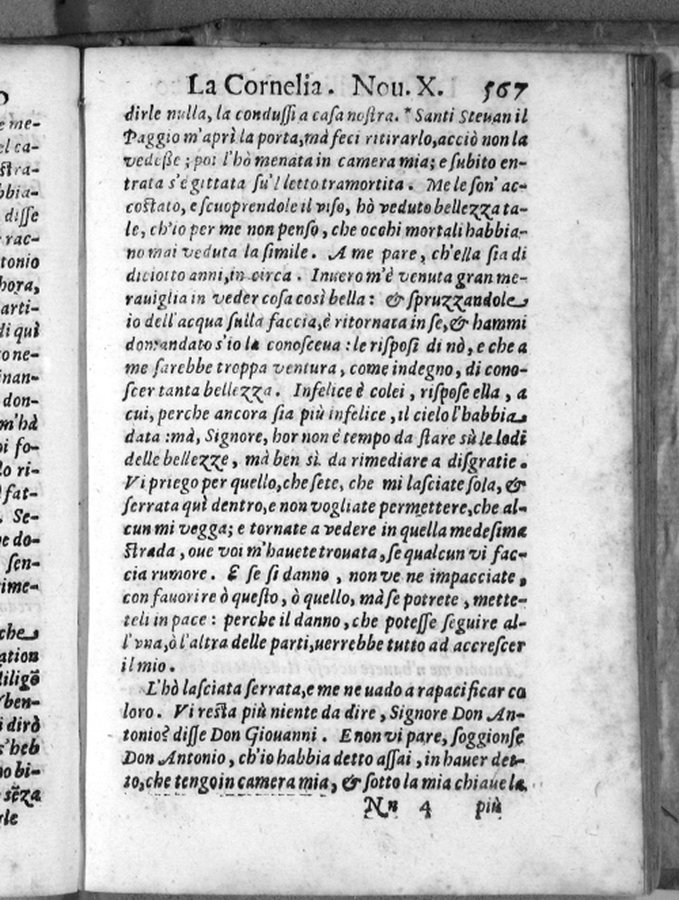 La Cornelia. Nou. X. 567
dirle nulla, la condussi a casa nostra. * Santi Steuan il
Paggio m'aprì la porta, mà feci ritirarlo, acciò non la
vedeße; poi l'hò menata in camera mia; e subito en-
trata s'è gittata su'l letto tramortita. Me le son' ac-
costato, e scuoprendole il viso, hò veduto bellezza ta-
le, ch'io per me non penso, che occhi mortali habbia-
no mai veduta la simile. A me pare, ch'ella sia di
diciotto anni, in circa. Inuero m'è venuta gran me-
rauiglia in veder cosa così bella: & spruzzandole
io dell'acqua sulla faccia, è ritornata in se, & hammi
domandato s'io la conosceua: le risposi di nò, e che a
me sarebbe troppa ventura, come indegno, di cono-
scer tanta bellezza. Infelice è colei, rispose ella, a
cui, perche ancora sia più infelice, il cielo l'habbia
data: mà, Signore, hor non è tempo da stare sù le lodi
delle bellezze, mà ben sì da rimediare a disgratie.
Vi priego per quello, che sete, che mi lasciate sola, &
serrata quì dentro, e non vogliate permettere, che al-
cun mi vegga; e tornate a vedere in quella medesima
strada, oue voi m'hauete trouata, se qualcun vi fac-
cia rumore. E se si danno, non ve ne impacciate,
con fauorire ò questo, ò quello, mà se potrete, mette-
teli in pace: perche il danno, che potesse seguire al-
l'vna, ò l'altra delle parti, uerrebbe tutto ad accrescer
il mio.
L'hò lasciata serrata, e me ne uado a rapacificar co
loro. Vi resta più niente da dire, Signore Don An-
tonio? disse Don Giouanni. E non vi pare, soggionse
Don Antonio, ch'io habbia detto assai, in hauer det-
to, che tengo in camera mia, & sotto la mia chiaue la
Nn 4 più